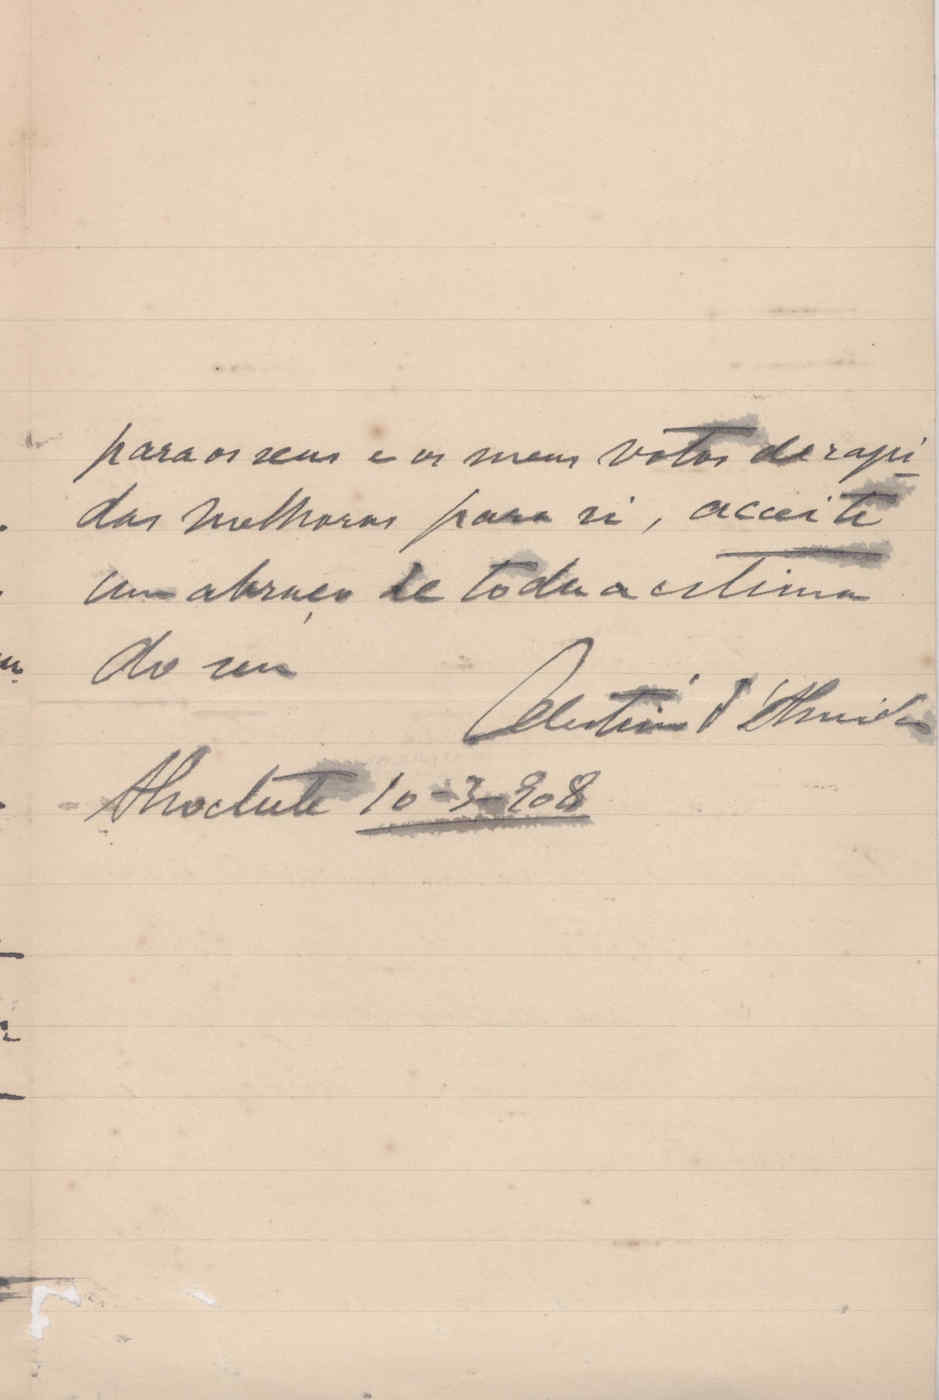 para os seus e os meus votos de rapi
das melhoras para si, acceite
um abraço de toda a estima
do seu
Celestino d'Almeida
Alcochete 10-3-908